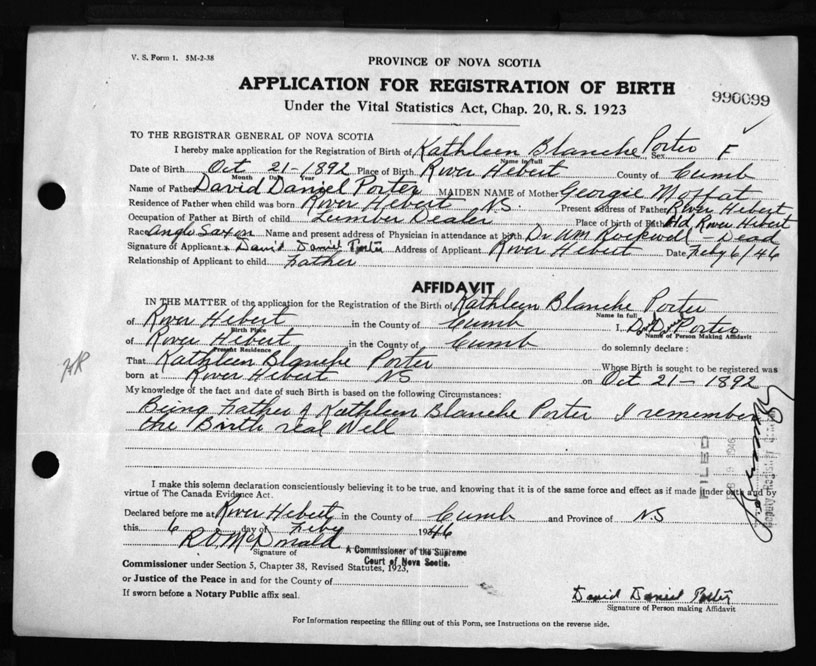 V. S. Form 1. 5M-2-38
PROVINCE OF NOVA SCOTIA
APPLICATION FOR REGISTRATION OF BIRTH
990699
Under the Vital Statistics Act, Chap. 20, R. S. 1923
TO THE REGISTRAR GENERAL OF NOVA SCOTIA
I hereby make application for the Registration of Birth of Kathleen Blanche Porter Sex F
Name in full
Date of Birth Oct 21-1892 Place of Birth River Hebert County of Cumb
Month Day Year
Name of Father David Daniel Porter MAIDEN NAME of Mother Georgie Moffat
Residence of Father when child was born River Hebert NS. Present address of Father River Hebert
Occupation of Father at Birth of child Lumber Dealer Place of birth of Father River Hebert
Race Anglo Saxon Name and present address of Physician in attendance at birth Dr Wm Rockwell - Dead
Signature of Applicant David Daniel Porter Address of Applicant River Hebert Date Feby 6/46
Relationship of Applicant to child Father
AFFIDAVIT
IN THE MATTER of the application for the Registration of the Birth of Kathleen Blanche Porter
Name in full
of River Hebert in the County of Cumb I, D. D. Porter
Birth Place Name of Person Making Affidavit
of River Hebert in the County of Cumb do solemnly declare:
Present Residence
That Kathleen Blanche Porter Whose Birth is sought to be registered was
born at River Hebert NS on Oct 21-1892
HR
My knowledge of the fact and date of such Birth is based on the following Circumstances:
Being Father of Kathleen Blanche Porter I remember
the Birth real Well
FILED
I make this solemn declaration conscientiously believing it to be true, and knowing that it is of the same force and effect as if made under oath and by
virtue of The Canada Evidence Act.
Declared before me at River Hebert in the County of Cumb and Province of NS
this 6 day of Feby 1946
R D McDonald
Signature of A Commissioner of the Supreme
Court of Nova Scotia.
Commissioner under Section 5, Chapter 38, Revised Statutes, 1923,
or Justice of the Peace in and for the County of
If sworn before a Notary Public affix seal.
David Daniel Porter
Signature of Person making Affidavit
For Information respecting the filling out of this Form, see Instructions on the reverse side.